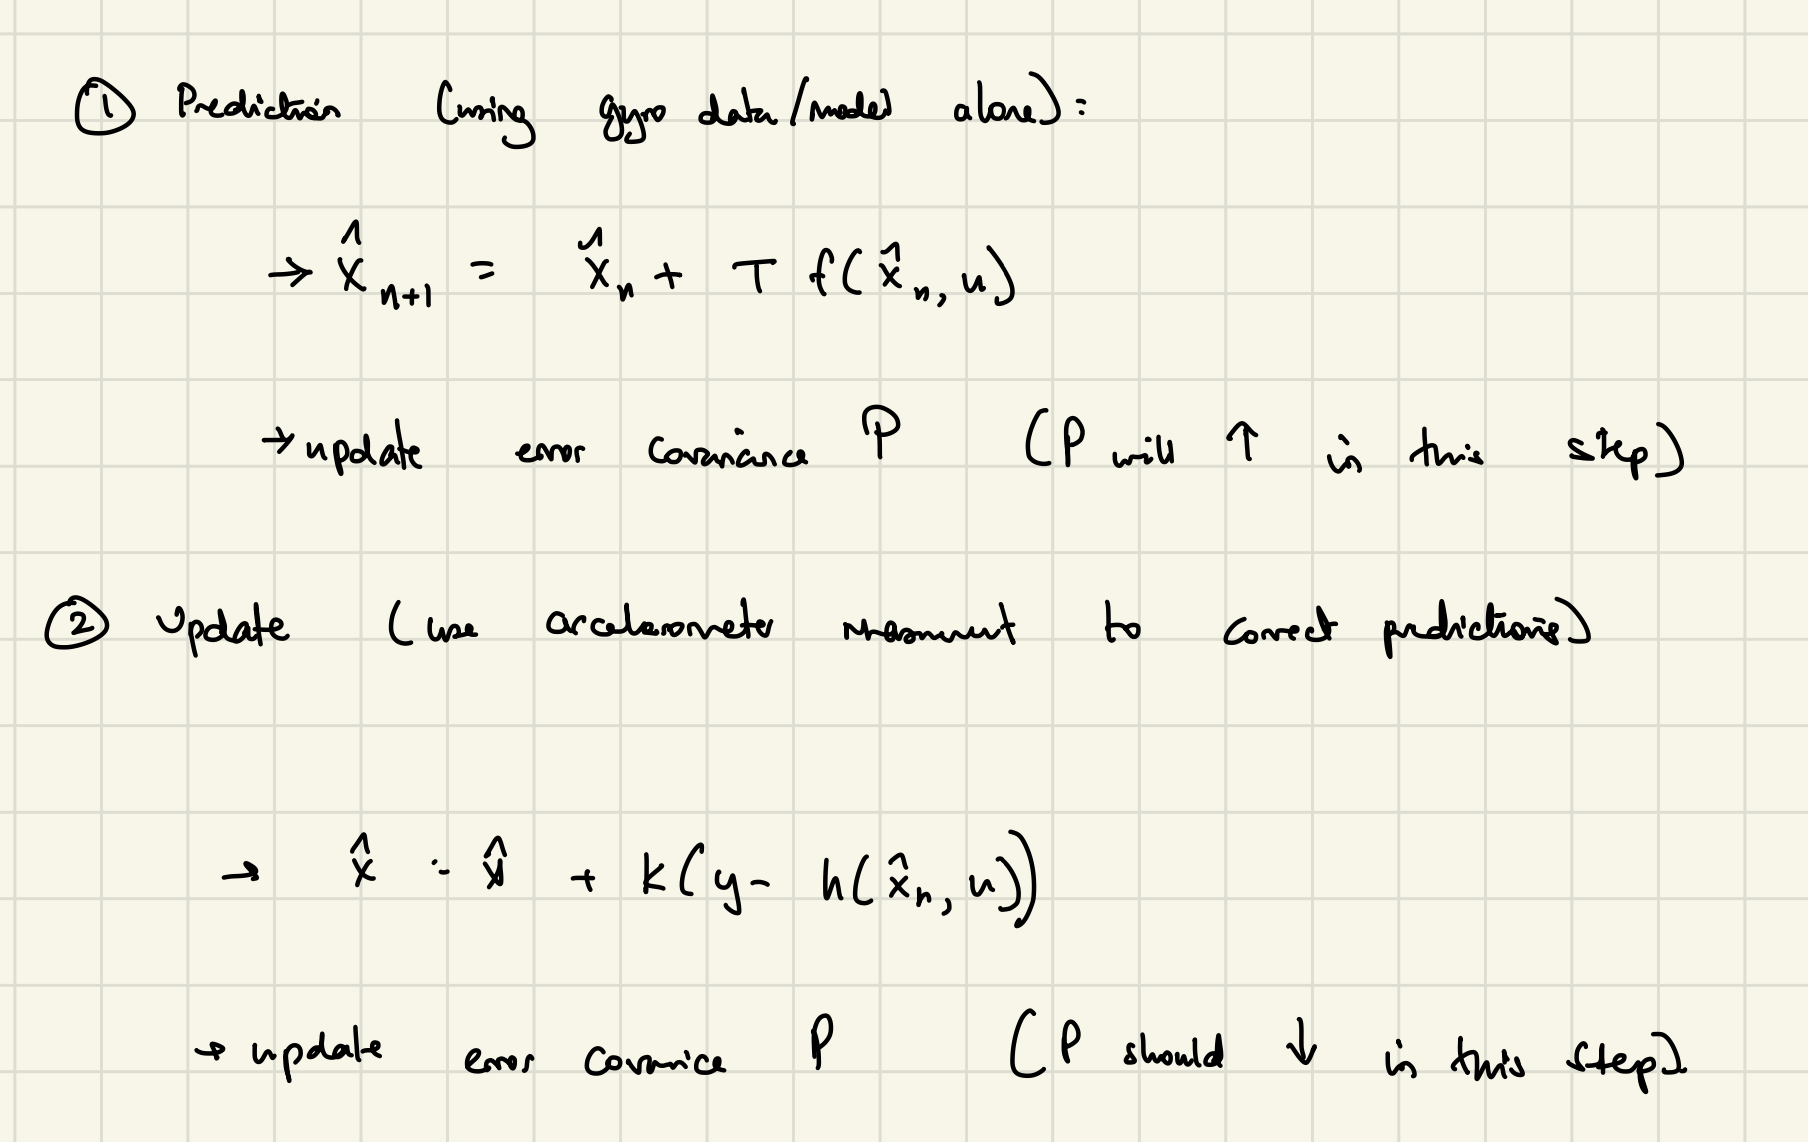 ① Prediction (using gyro data/model alone):
→ x̂ₙ₊₁ = x̂ₙ + T f(x̂ₙ, u)
→ update error covariance P (P will ↑ in this step)
② Update (use accelerometer to correct predictions)
→ x̂ = x̂ + K(y - h(x̂ₙ, u))
→ update error P (P should ↓ in this step)